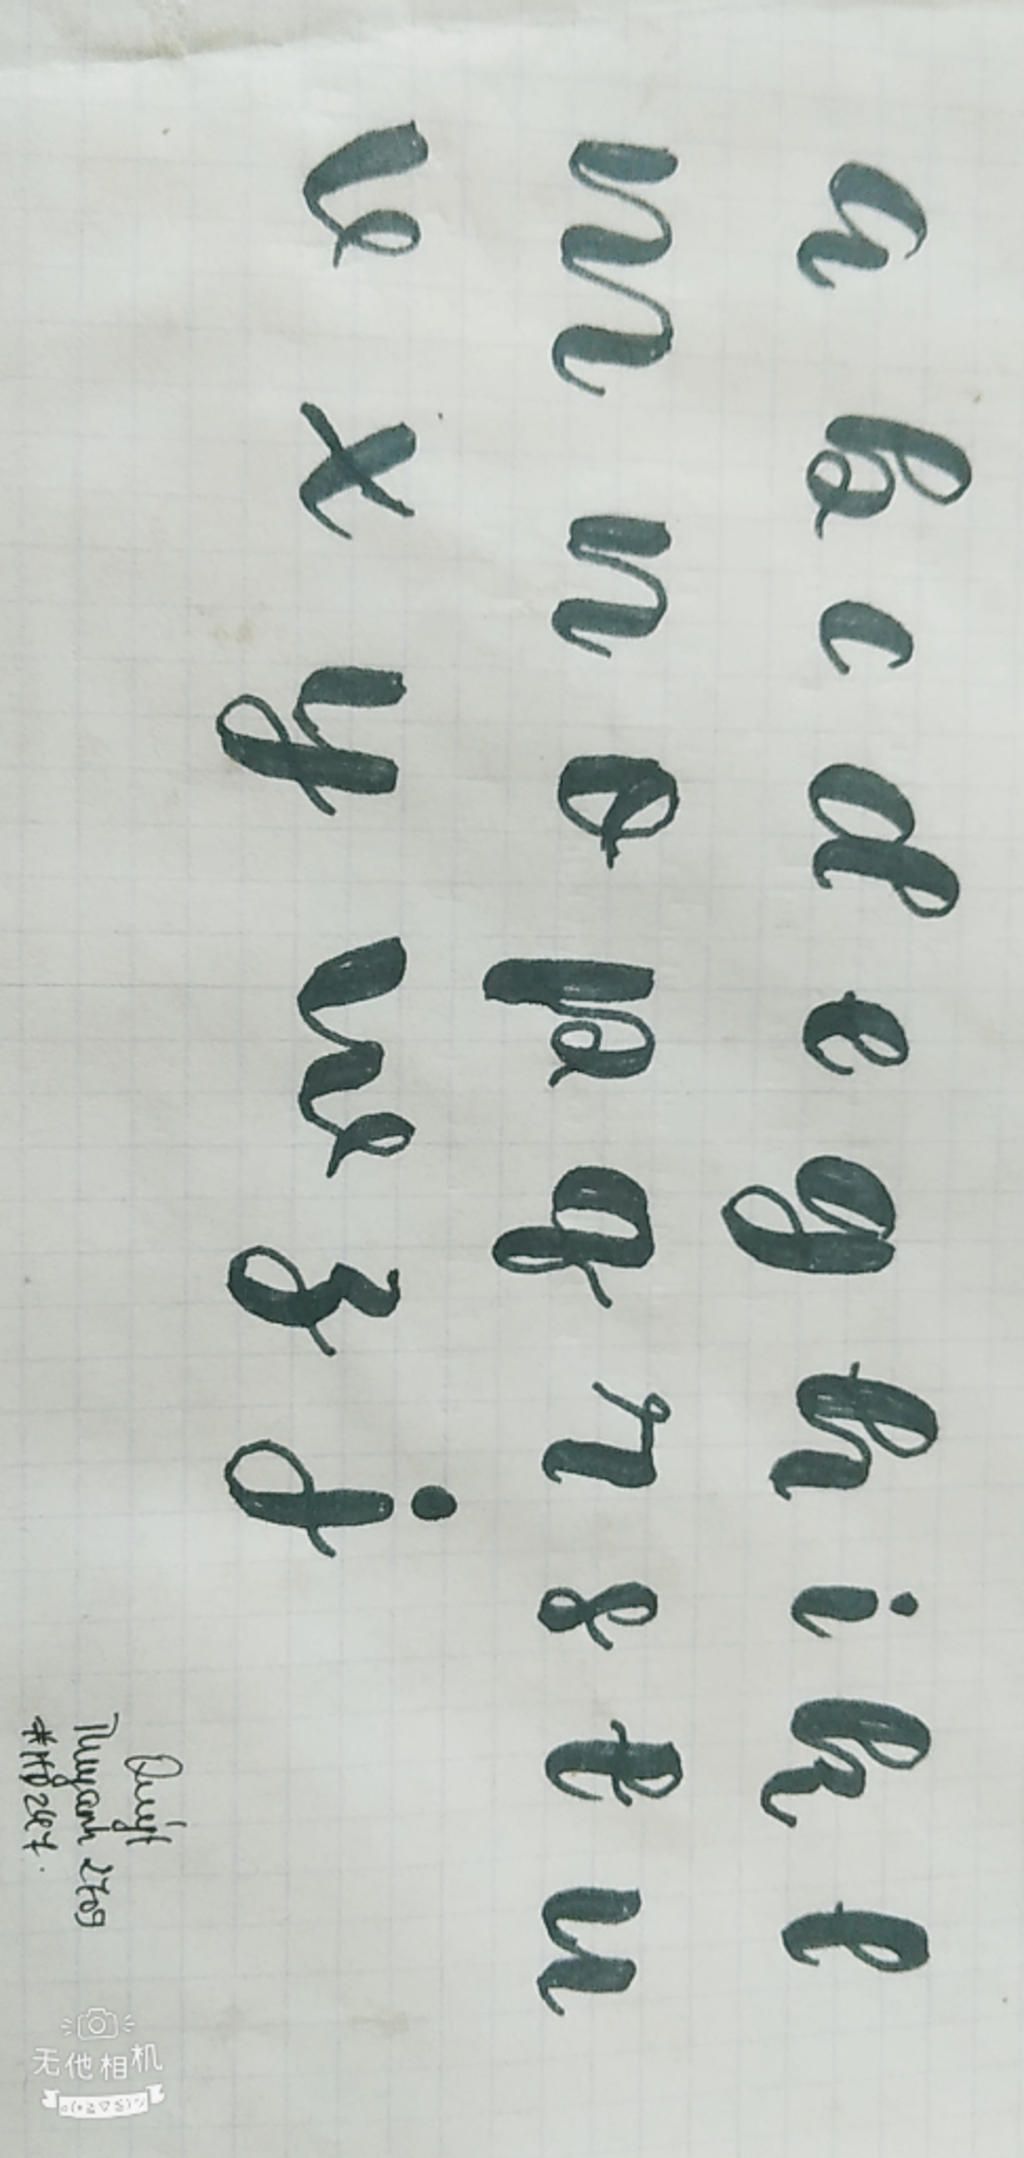 a b c d e g h i k l
m n o p q r s t u
v x y w z j
Quýt
Thuyanh 2709
#HD247.
无他相机